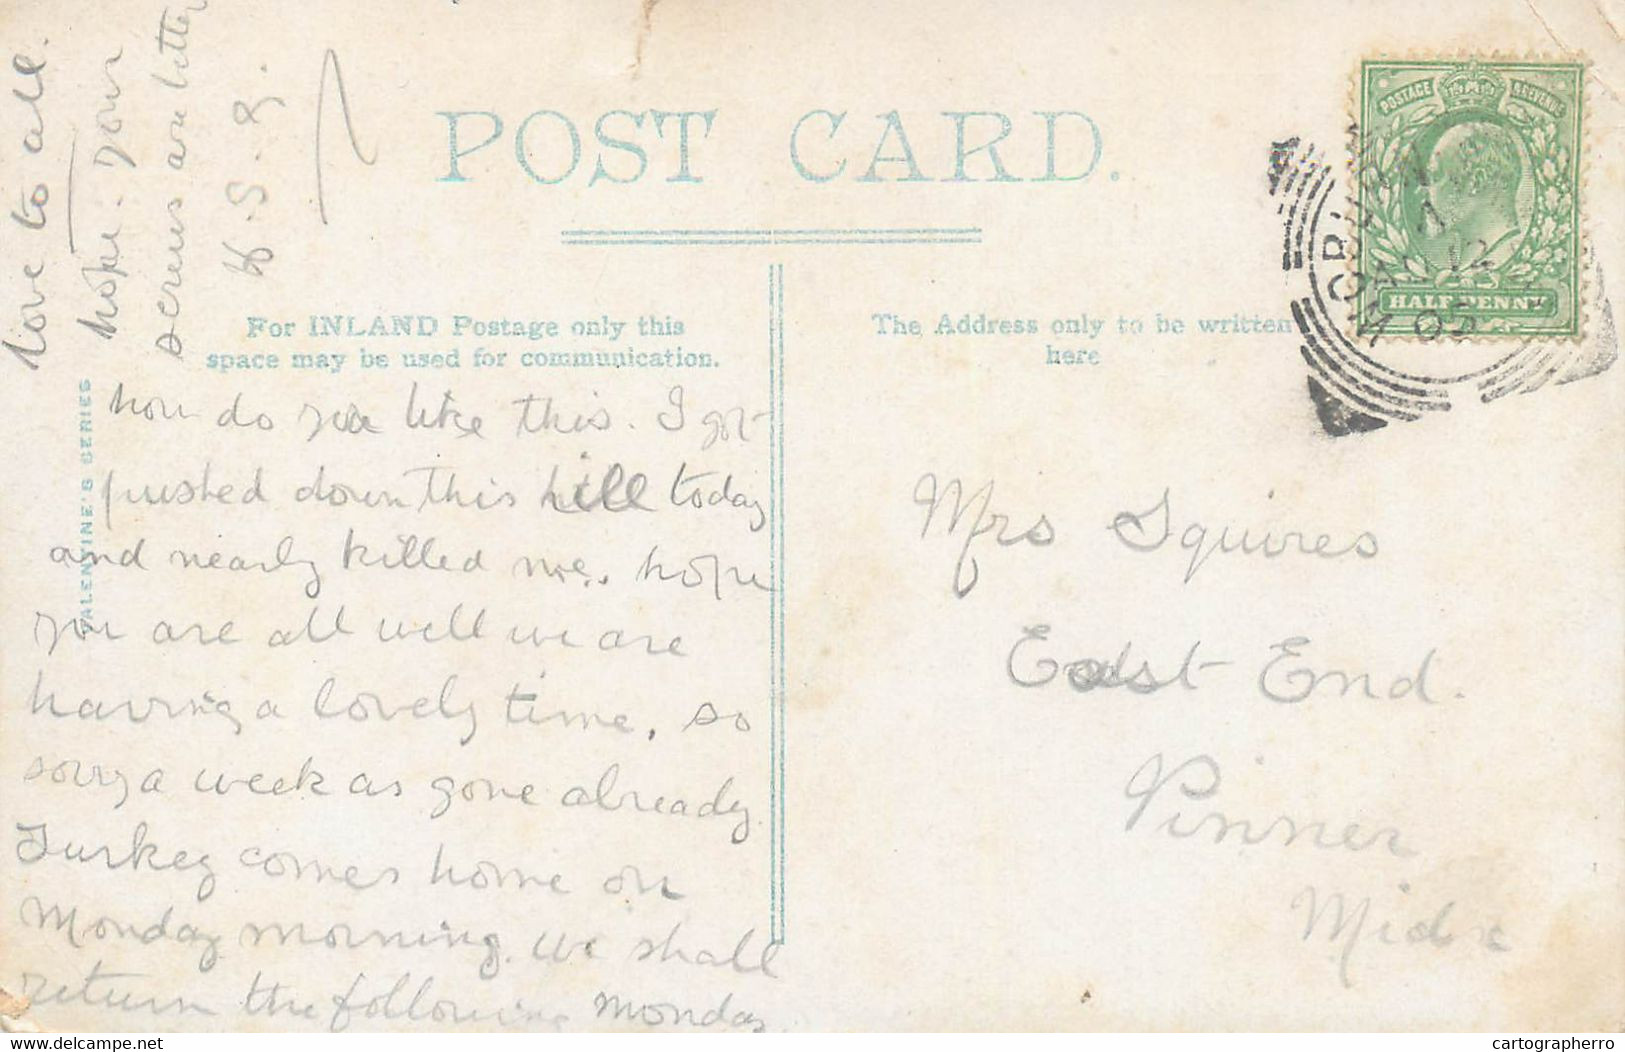 POST CARD.
For INLAND Postage only this
space may be used for communication.
The Address only to be written
here
VALENTINE'S SERIES
how do you like this. I got
pushed down this hill today
and nearly killed me. hope
you are all well we are
having a lovely time, so
sorry a week as gone already.
Turkey comes home on
Monday morning. we shall
return the following Monday.
love to all.
hope: your
are better
Mrs Squires
East End.
Pinner
Midx
POSTAGE & REVENUE
HALF PENNY
12
05
www.delcampe.net
cartographerro